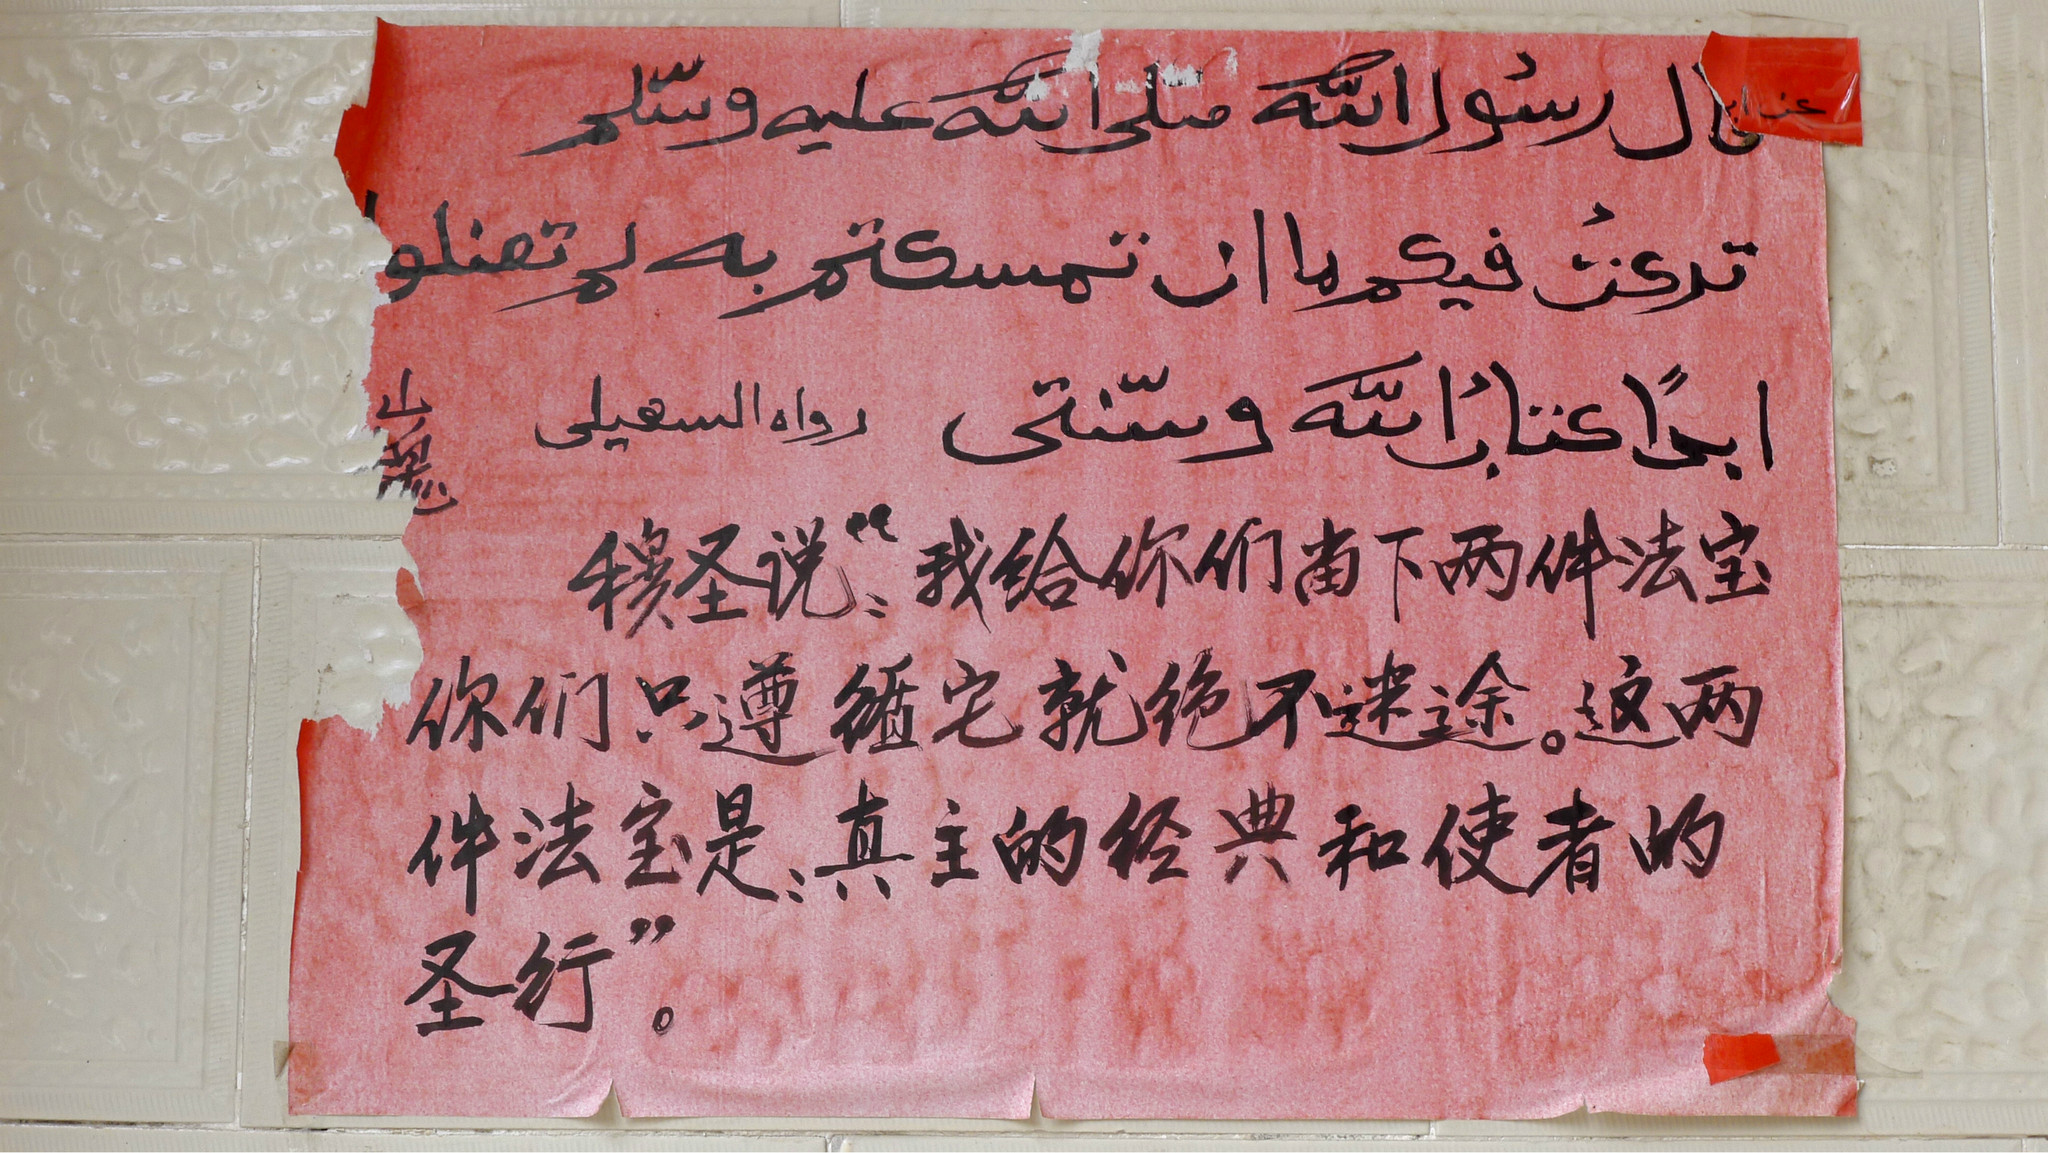 قال رسُول الله صلى الله عليه وسّلم
تركتُ فيكم ما ان تمسكتم به لم تضلوا
ابدًا كتابُ الله وسّنتى رواه السهيلى
穆圣说:“我给你们留下两件法宝
你们只遵循它就绝不迷途。这两
件法宝是:真主的经典和使者的
圣行”。